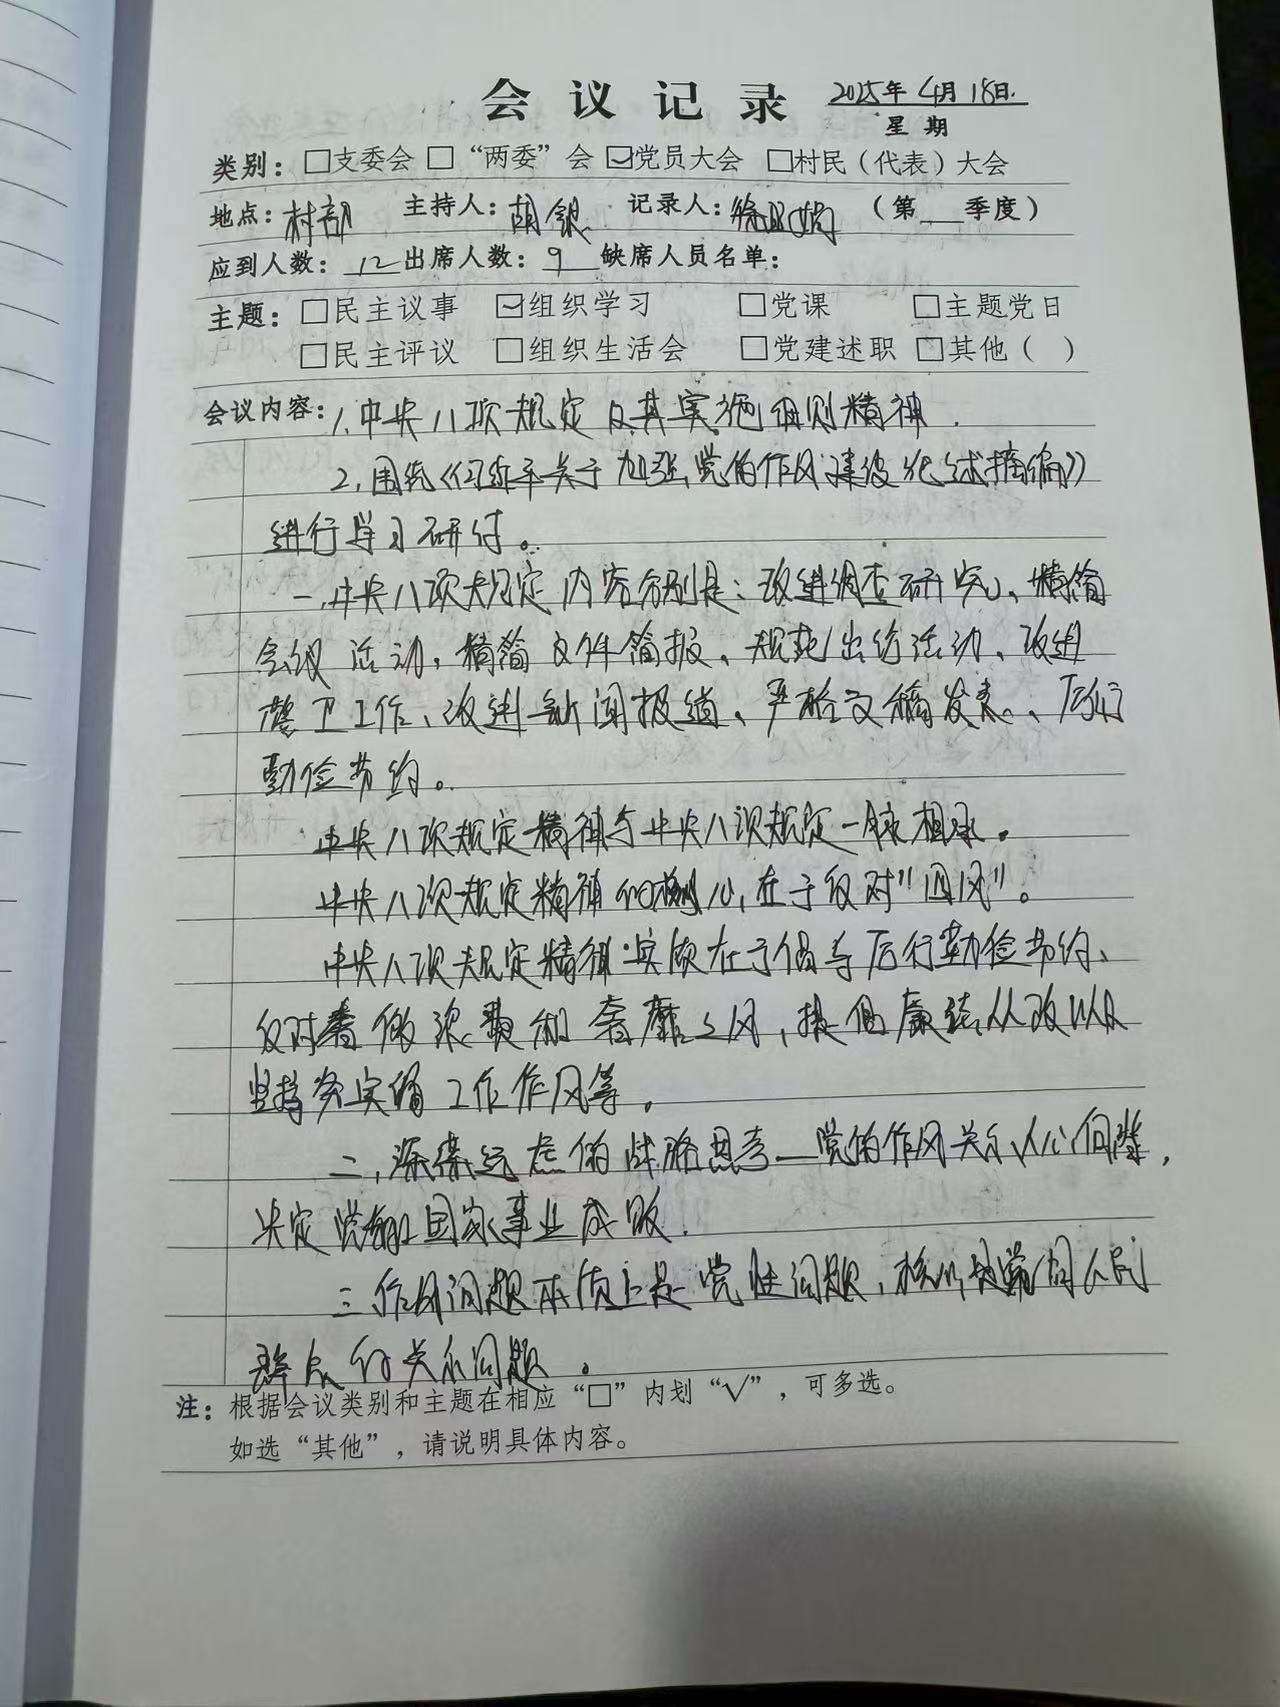 会议记录 2025年4月18日.
星期
类别：□支委会 □“两委”会 ☑党员大会 □村民（代表）大会
地点：村部 主持人：胡银 记录人：徐 娟 （第___季度）
应到人数：12 出席人数：9 缺席人员名单：
主题：□民主议事 ☑组织学习 □党课 □主题党日
□民主评议 □组织生活会 □党建述职 □其他（ ）
会议内容：1、中央八项规定及其实施细则精神.
2、围绕《习近平关于加强党的作风建设论述摘编》
进行学习研讨。
一、中央八项规定内容分别是：改进调查研究、精简
会议活动、精简文件简报、规范出访活动、改进
警卫工作、改进新闻报道、严格文稿发表、厉行
勤俭节约。
中央八项规定精神与中央八项规定一脉相承。
中央八项规定精神的核心，在于反对“四风”。
中央八项规定精神实质在于倡导厉行勤俭节约、
反对 浪费和奢靡之风，提倡廉洁从政以及
坚持务实的工作作风等。
二、深谋远虑的战略思考—党的作风关系人心向背，
决定党和国家事业成败.
三、作风问题本质上是党性问题，核心是党同人民
群众的关系问题。
注：根据会议类别和主题在相应“□”内划“√”，可多选。
如选“其他”，请说明具体内容。